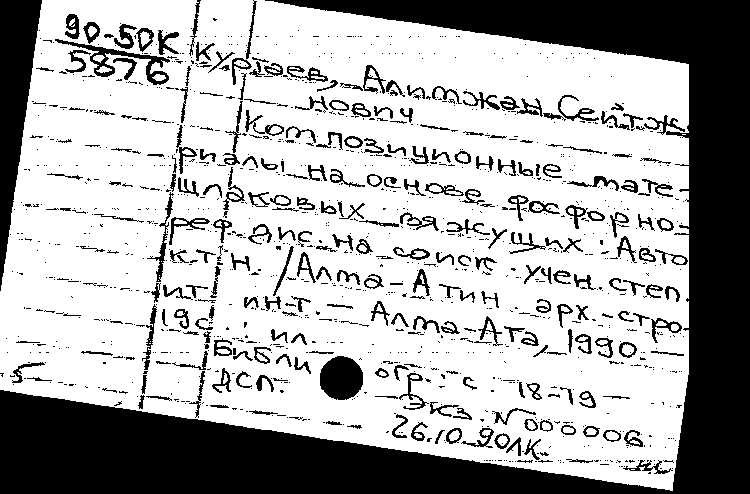 90-50К
5876
Куртаев, Алимжан Сейтжа
нович
Композиционные мате-
риалы на основе фосфорно-
шлаковых вяжущих : Авто
реф. дис. на соиск. учен. степ.
к.т.н. / Алма-Атин. арх.-стро-
ит. ин-т. — Алма-Ата, 1990. —
19с. : ил.
Библиогр.: с. 18-19 —
ДСП. Экз. N 000006
26.10.90ЛК.
5